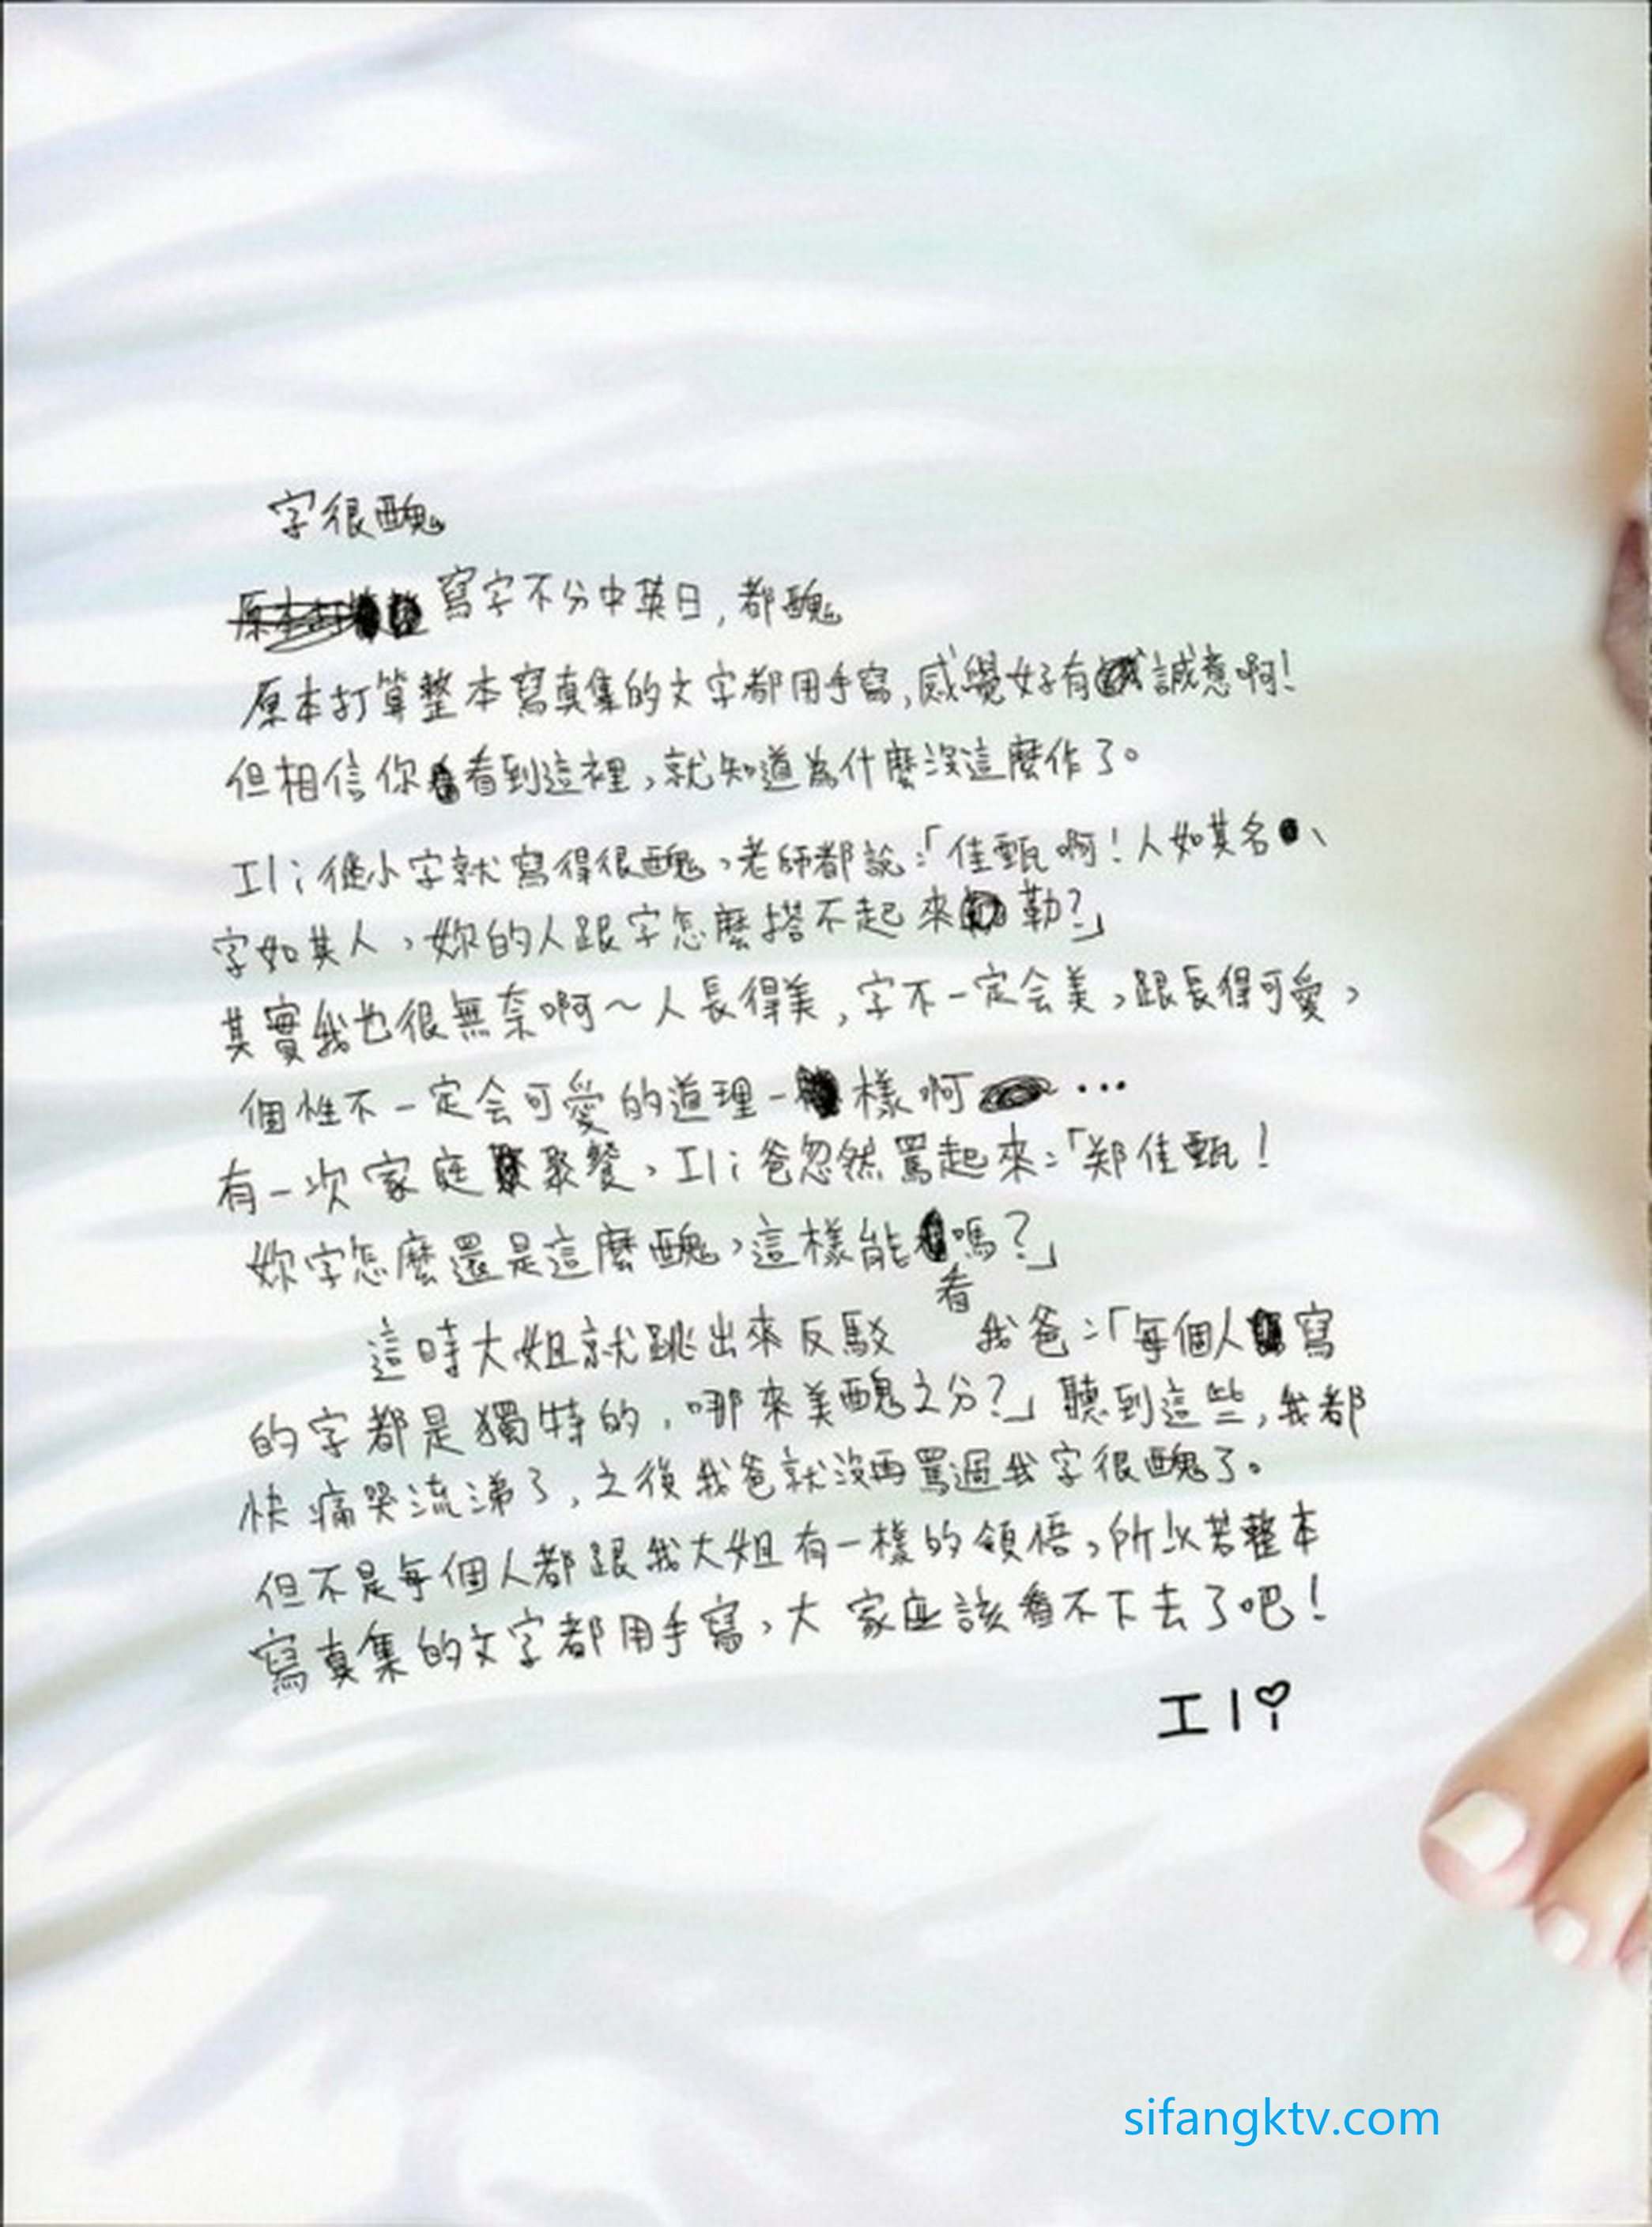 字很醜
寫字不分中英日,都醜
原本打算整本寫真集的文字都用手寫,感覺好有誠意啊!
但相信你看到這裡,就知道為什麼沒這麼作了。
Ili從小字就寫得很醜,老師都說:「佳甄啊!人如其名、
字如其人,妳的人跟字怎麼搭不起來勒?」
其實我也很無奈啊~人長得美,字不一定会美,跟長得可愛,
個性不一定会可愛的道理一樣啊...
有一次家庭聚餐,Ili爸忽然罵起來:「郑佳甄!
妳字怎麼還是這麼醜,這樣能看嗎?」
這時大姐就跳出來反駁我爸:「每個人寫
的字都是獨特的,哪來美醜之分?」聽到這些,我都
快痛哭流涕了,之後我爸就沒再罵過我字很醜了。
但不是每個人都跟我大姐有一樣的領悟,所以若整本
寫真集的文字都用手寫,大家应該看不下去了吧!
Ili
sifangktv.com